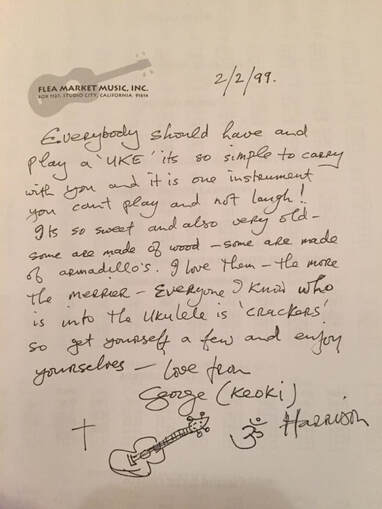 FLEA MARKET MUSIC, INC.
BOX 1127, STUDIO CITY, CALIFORNIA 91614
2/2/99.
Everybody should have and
play a 'UKE' its so simple to carry
with you and it is one instrument
you cant play and not laugh!
Its so sweet and also very old -
some are made of wood - some are made
of armadillo's. I love them - the more
the merrier - Everyone I know who
is into the ukulele is 'crackers'
so get yourself a few and enjoy
yourselves - Love from
George (Keoki)
Harrison
ॐ